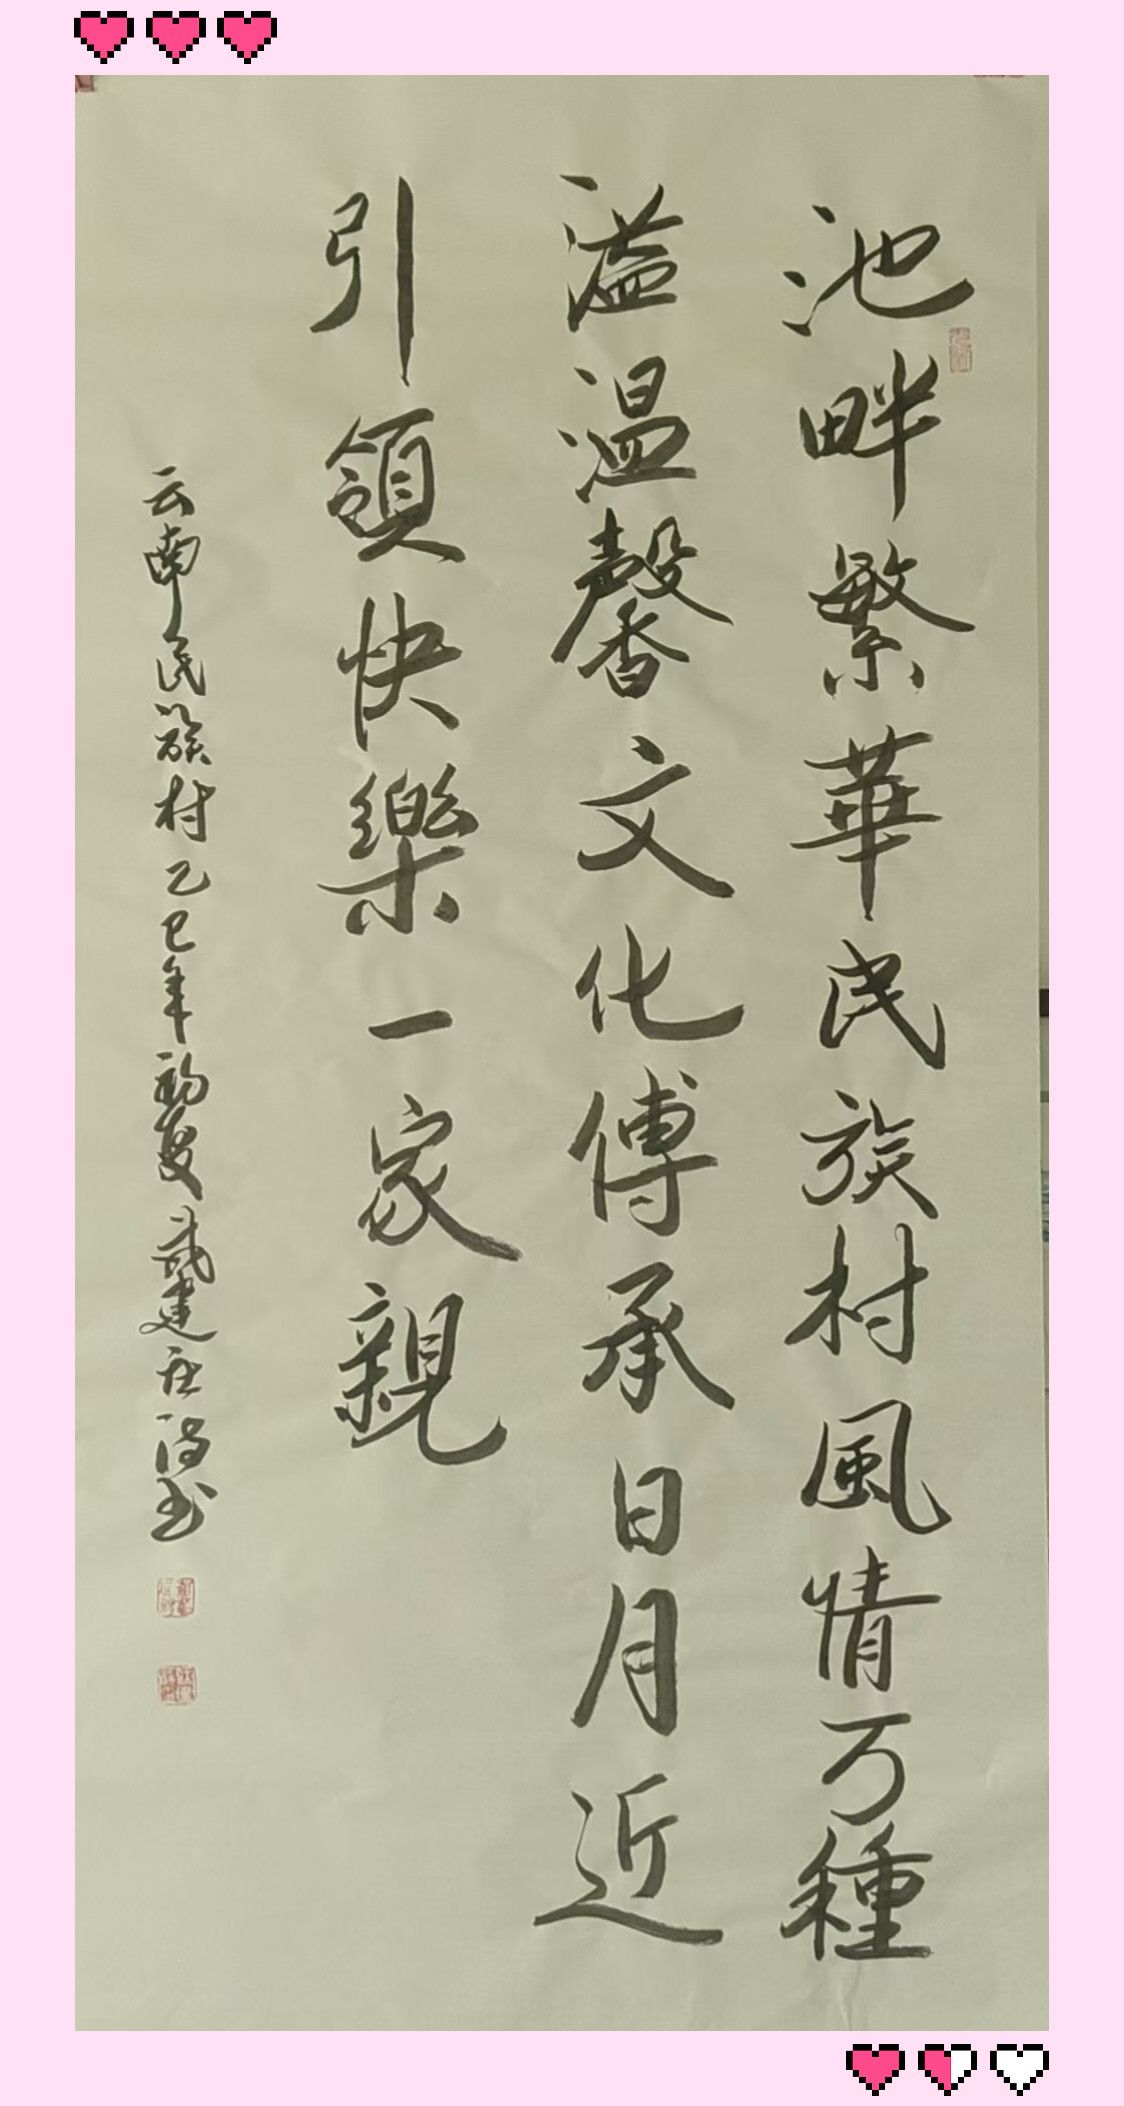 池畔繁華民族村風情万種
溢温馨文化傳承日月近
引領快樂一家親
云南民族村乙巳年初夏武建社诗书